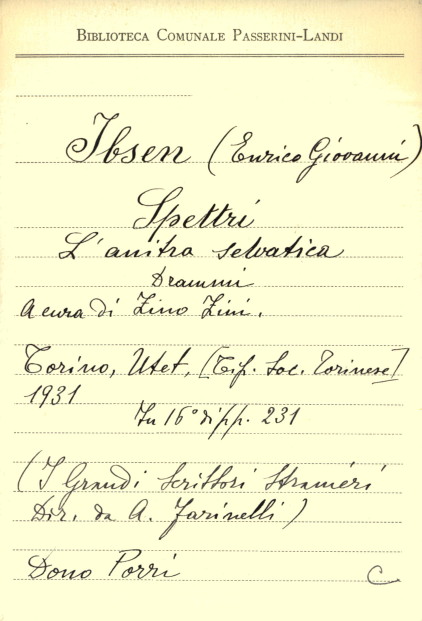 BIBLIOTECA COMUNALE PASSERINI-LANDI
Ibsen (Enrico Giovanni)
Spettri
L'anitra selvatica
Drammi
A cura di Zino Zini.
Torino, Utet, [Tip. Soc. Torinese]
1931
In 16° di pp. 231
(I Grandi Scrittori Stranieri
Dir. da A. Farinelli)
Dono Porri
C